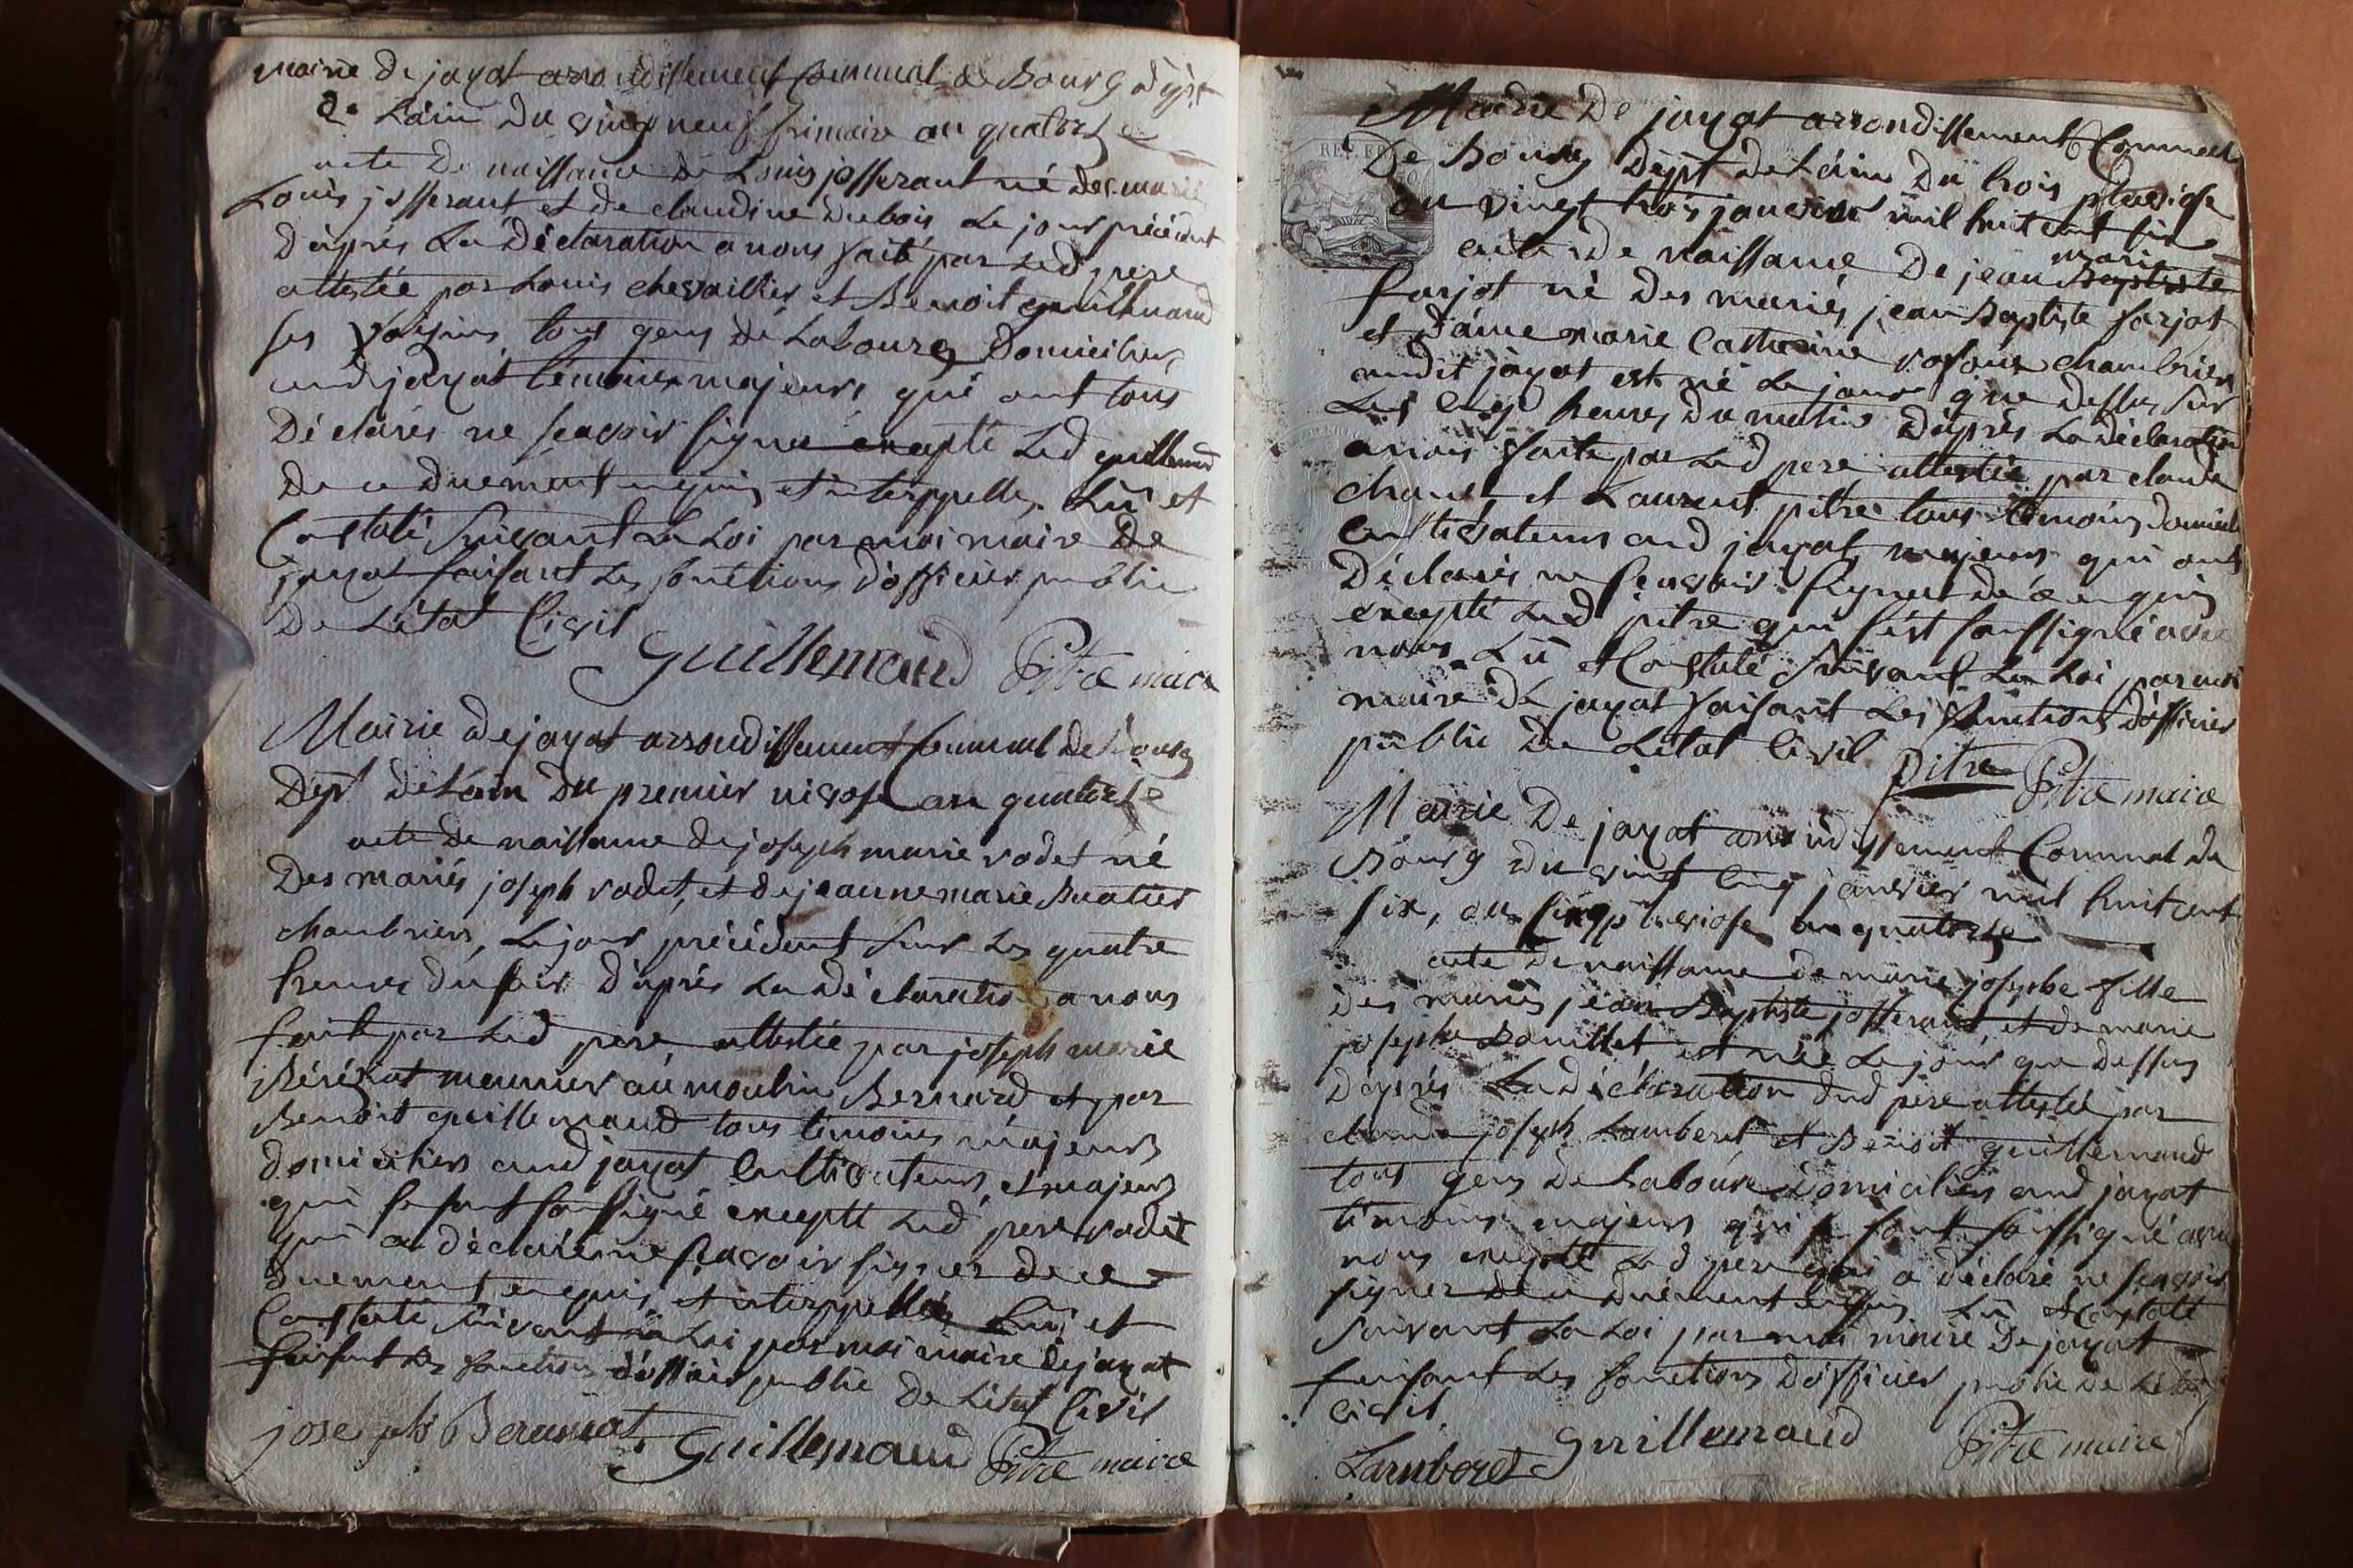 Mairie de jayat arrondissement Communal de Bourg dépt
de Lain du vingt neuf frimaire an quatorze
acte de naissance de Louis josserant né des mariés
Louis josserant et de claudine dubois le jour précédent
d'aprés La Déclaration a nous faite par led pere
attestée par Louis chevaillier et Benoit guillemaud
ses voisins tous gens de Labourg Domiciliers
aud jayat témoins majeurs qui ont tous
Déclarés ne scavoir signer excepté Led guillemaud
de ce duement enquis et interppellés. Lu et
Constaté Suivant La Loi par moi maire De
jayat faisant Les fonctions d'officier public
De Létat Civil
Guillemaud Pitre maire
Mairie de jayat arrondissement Communal de Bourg
Dépt de Lain du premier nivose an quatorze
acte de naissance de joseph marie vodet né
Des mariés joseph vodet, et de jeanne marie Buatier
chambriers, Le jour précédent sur Les quatre
heures du soir d'aprés La déclaration a nous
faite par Led pere, attestée par joseph marie
meunier au moulin Bernard et par
Benoit guillemaud tous témoins majeurs
domiciliers aud jayat Cultivateurs, et majeurs
qui se sont soussigné excepté Led pere vodet
qui a déclaré ne scavoir signer de ce
duement enquis et interppellée Lu et
Constaté suivant La Loi par moi maire de jayat
faisant Les fonctions d'officier public de Létat Civil
joseph Guillemaud Pitre maire
Mairie De jayat arrondissement Communal
De Bourg Dépt de Lain Du trois pluviose
ou vingt trois janvier mil huit cent six
marie
acte de naissance De jean Baptiste
farjot né Des mariés jean Baptiste farjot
et Dame marie Catherine chambriers
audit jayat est né Le jour que dessus sur
Les cinq heures du matin d'aprés La déclaration
a nous faite par Led pere attestée par claude
et Laurent pitre tous témoins domiciliés
Cultivateurs aud jayat majeurs qui ont
Déclarés ne scavoir signer de ce enquis
excepté Led pitre qui s'est soussigné avec
nous Lu et Constaté Suivant La Loi par moi
maire de jayat faisant Les fonctions d'officier
public de Létat Civil
pitre Pitre maire
Mairie De jayat arrondissement Communal de
Bourg du vint cinq janvier mil huit cent
six, ou cinq pluviose an quatorze
acte de naissance de marie josephe fille
des mariés jean Baptiste josserant et de marie
josephe Bouillet est née Le jour que dessus
D'aprés La déclaration dud pere attestée par
claude joseph Lamberet et Benoit guillemaud
tous gens de Laboure Domiciliers aud jayat
témoins majeurs qui se sont soussigné avec
nous excepté Led pere qui a déclaré ne scavoir
signer de ce duement enquis Lu et Constaté
suivant La Loi par moi maire De jayat
faisant Les fonctions d'officier public de Létat
civil
Lamberet Guillemaud Pitre maire